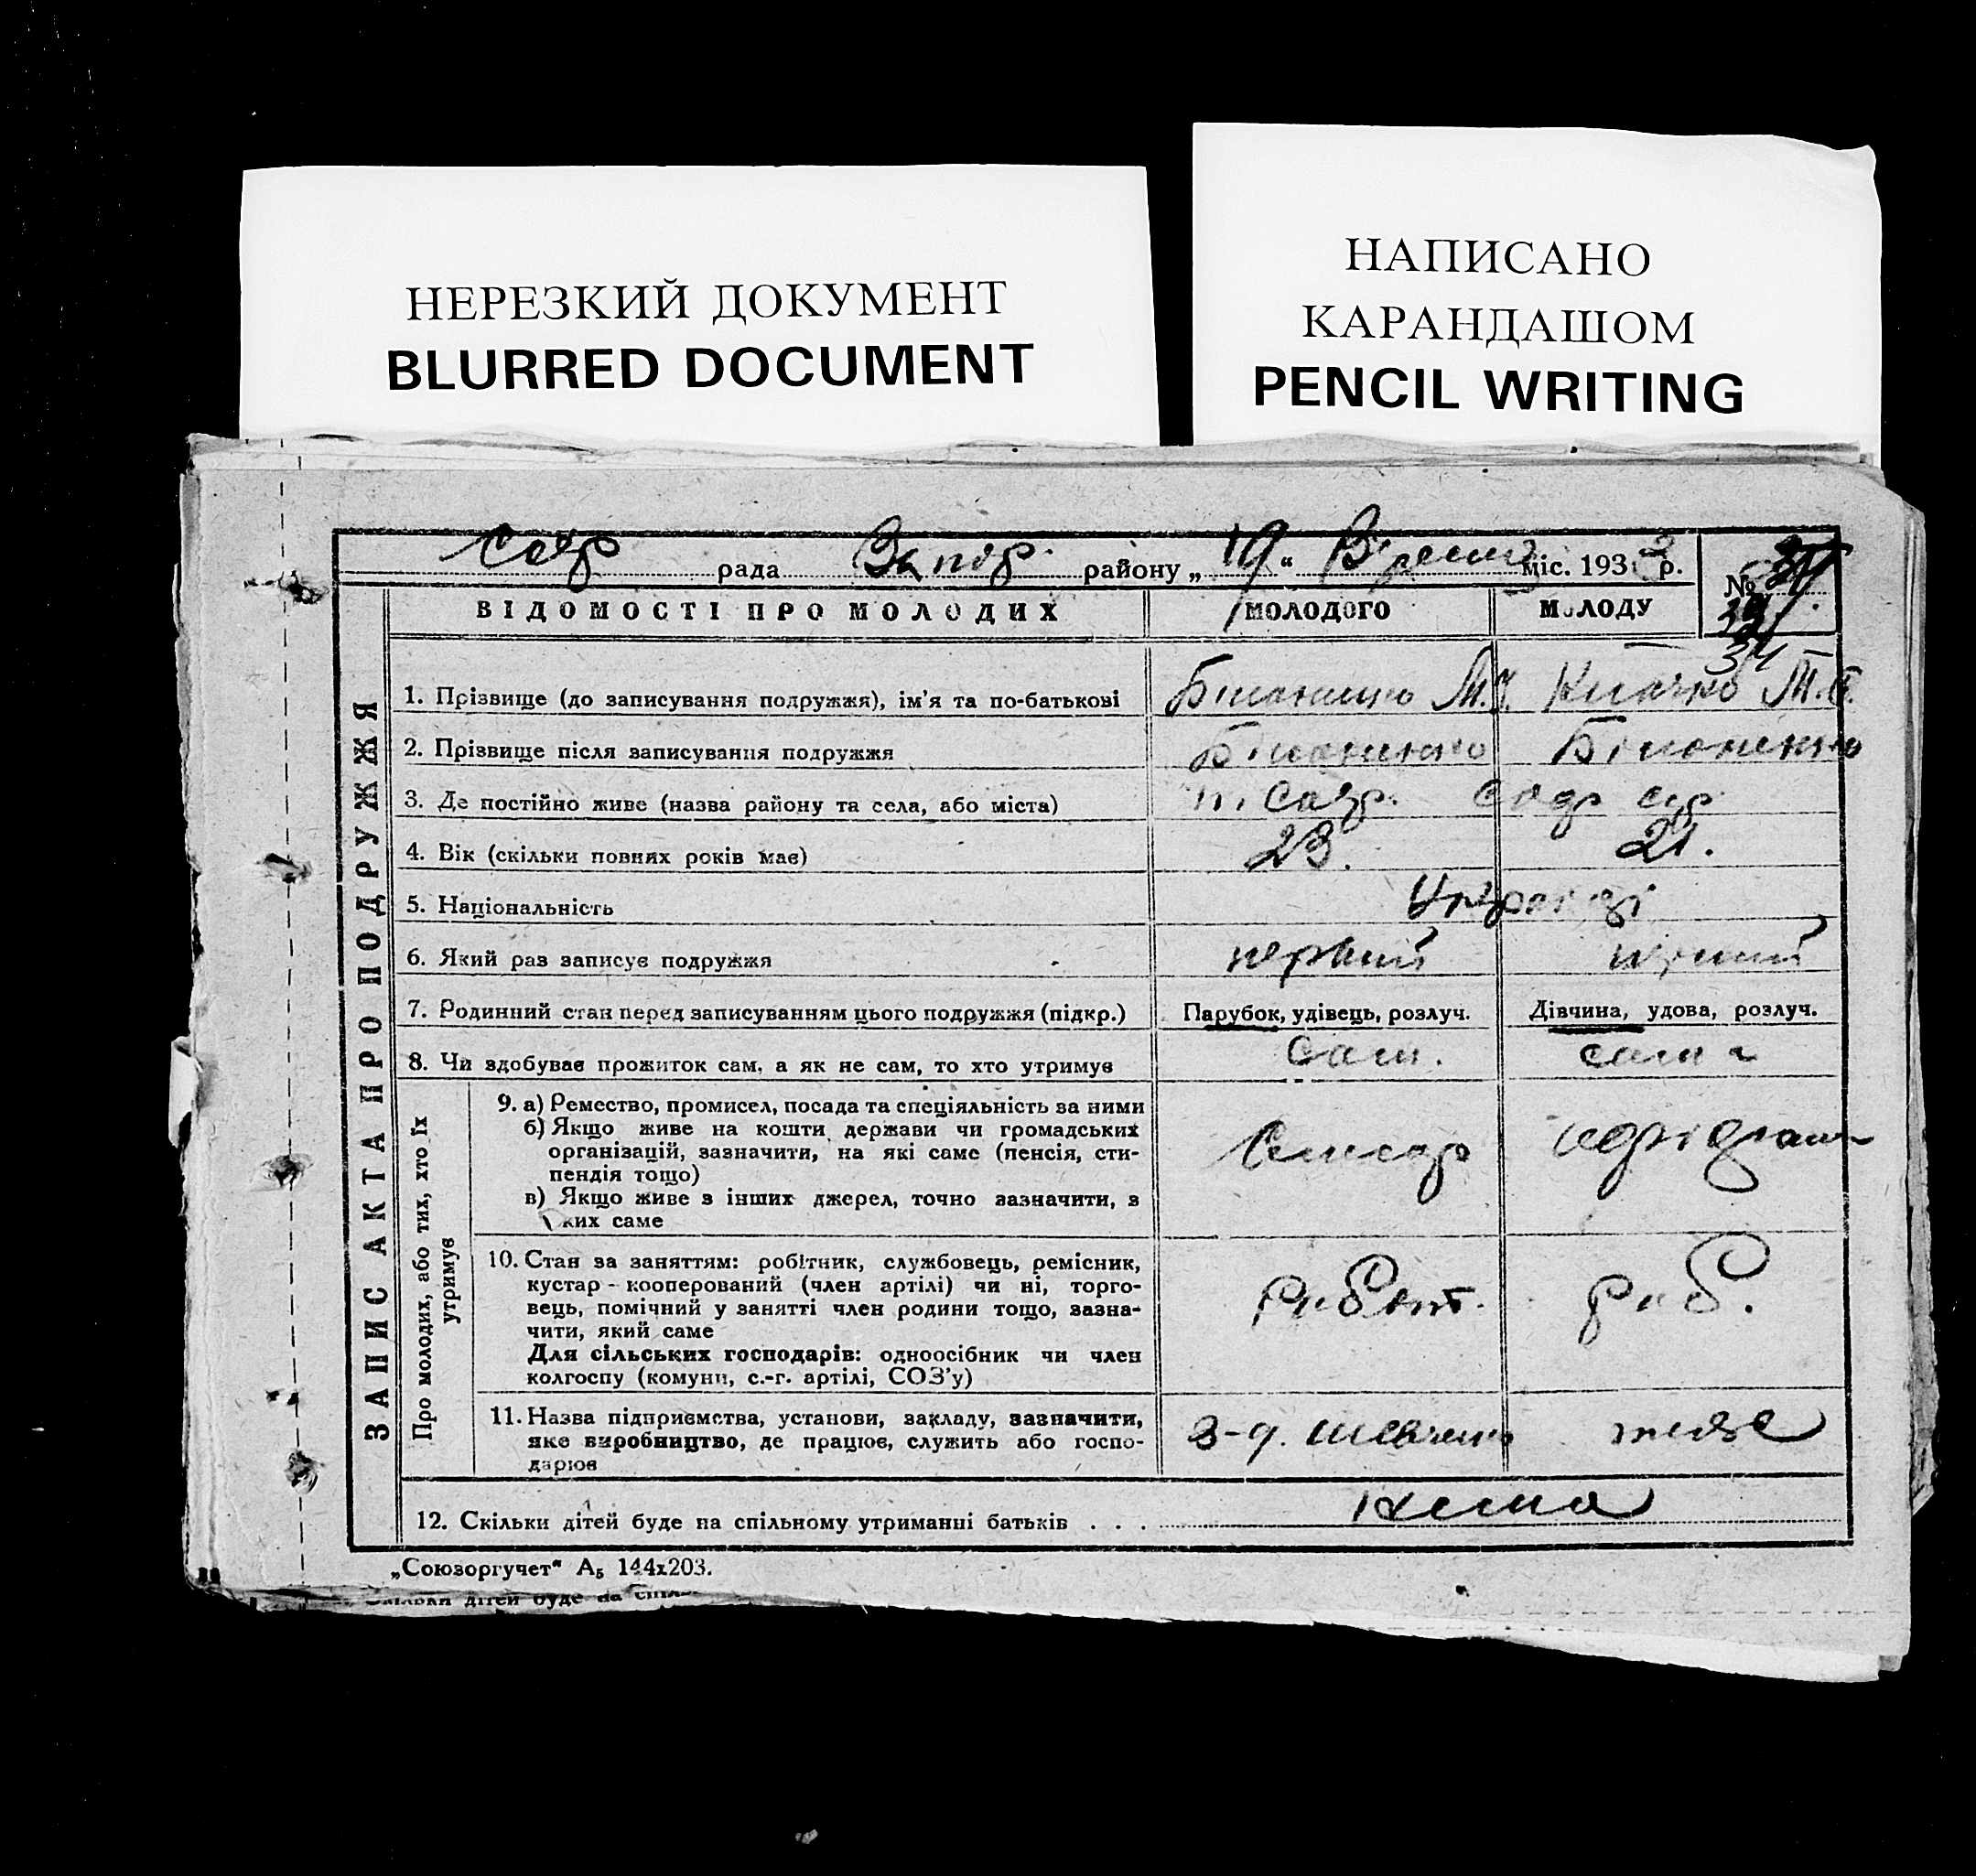 НЕРЕЗКИЙ ДОКУМЕНТ
BLURRED DOCUMENT
НАПИСАНО
КАРАНДАШОМ
PENCIL WRITING
рада Запор. району „19“ міс. 193 р.
№
34
ЗАПИС АКТА ПРО ПОДРУЖЖЯ
ВІДОМОСТІ ПРО МОЛОДИХ МОЛОДОГО МОЛОДУ
1. Прізвище (до записування подружжя), ім'я та по-батькові
2. Прізвище після записування подружжя
3. Де постійно живе (назва району та села, або міста)
4. Вік (скільки повних років має) 23. 21.
5. Національність
6. Який раз записує подружжя перший перший
7. Родинний стан перед записуванням цього подружжя (підкр.) Парубок, удівець, розлуч. Дівчина, удова, розлуч.
8. Чи здобуває прожиток сам, а як не сам, то хто утримує сам. сама
Про молодих, або тих, хто їх
утримує
9. а) Ремество, промисел, посада та спеціяльність за ними
б) Якщо живе на кошти держави чи громадських
організацій, зазначити, на які саме (пенсія, сти-
пендія тощо)
в) Якщо живе з інших джерел, точно зазначити, з
ких саме
Слюсар
10. Стан за заняттям: робітник, службовець, ремісник,
кустар - кооперований (член артілі) чи ні, торго-
вець, помічний у занятті член родини тощо, зазна-
чити, який саме
Для сільських господарів: одноосібник чи член
колгоспу (комуни, с.-г. артілі, СОЗ'у)
робіт. роб.
11. Назва підприємства, установи, закладу, зазначити,
яке виробництво, де працює, служить або госпо-
дарює
З-д. теж
12. Скільки дітей буде на спільному утриманні батьків . . . нема
„Союзоргучет“ А5 144х203.
Скільки дітей буде на спіль